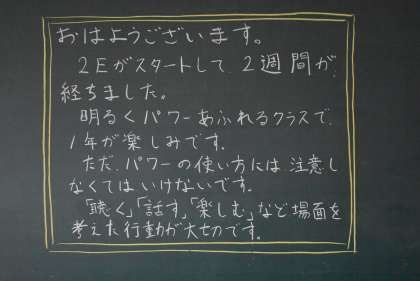 おはようございます。
２Eがスタートして、２週間が、
経ちました。
明るくパワーあふれるクラスで、
１年が楽しみです。
ただ、パワーの使い方には注意し
なくてはいけないです。
「聴く」「話す」「楽しむ」など場面を
考えた行動が大切です。